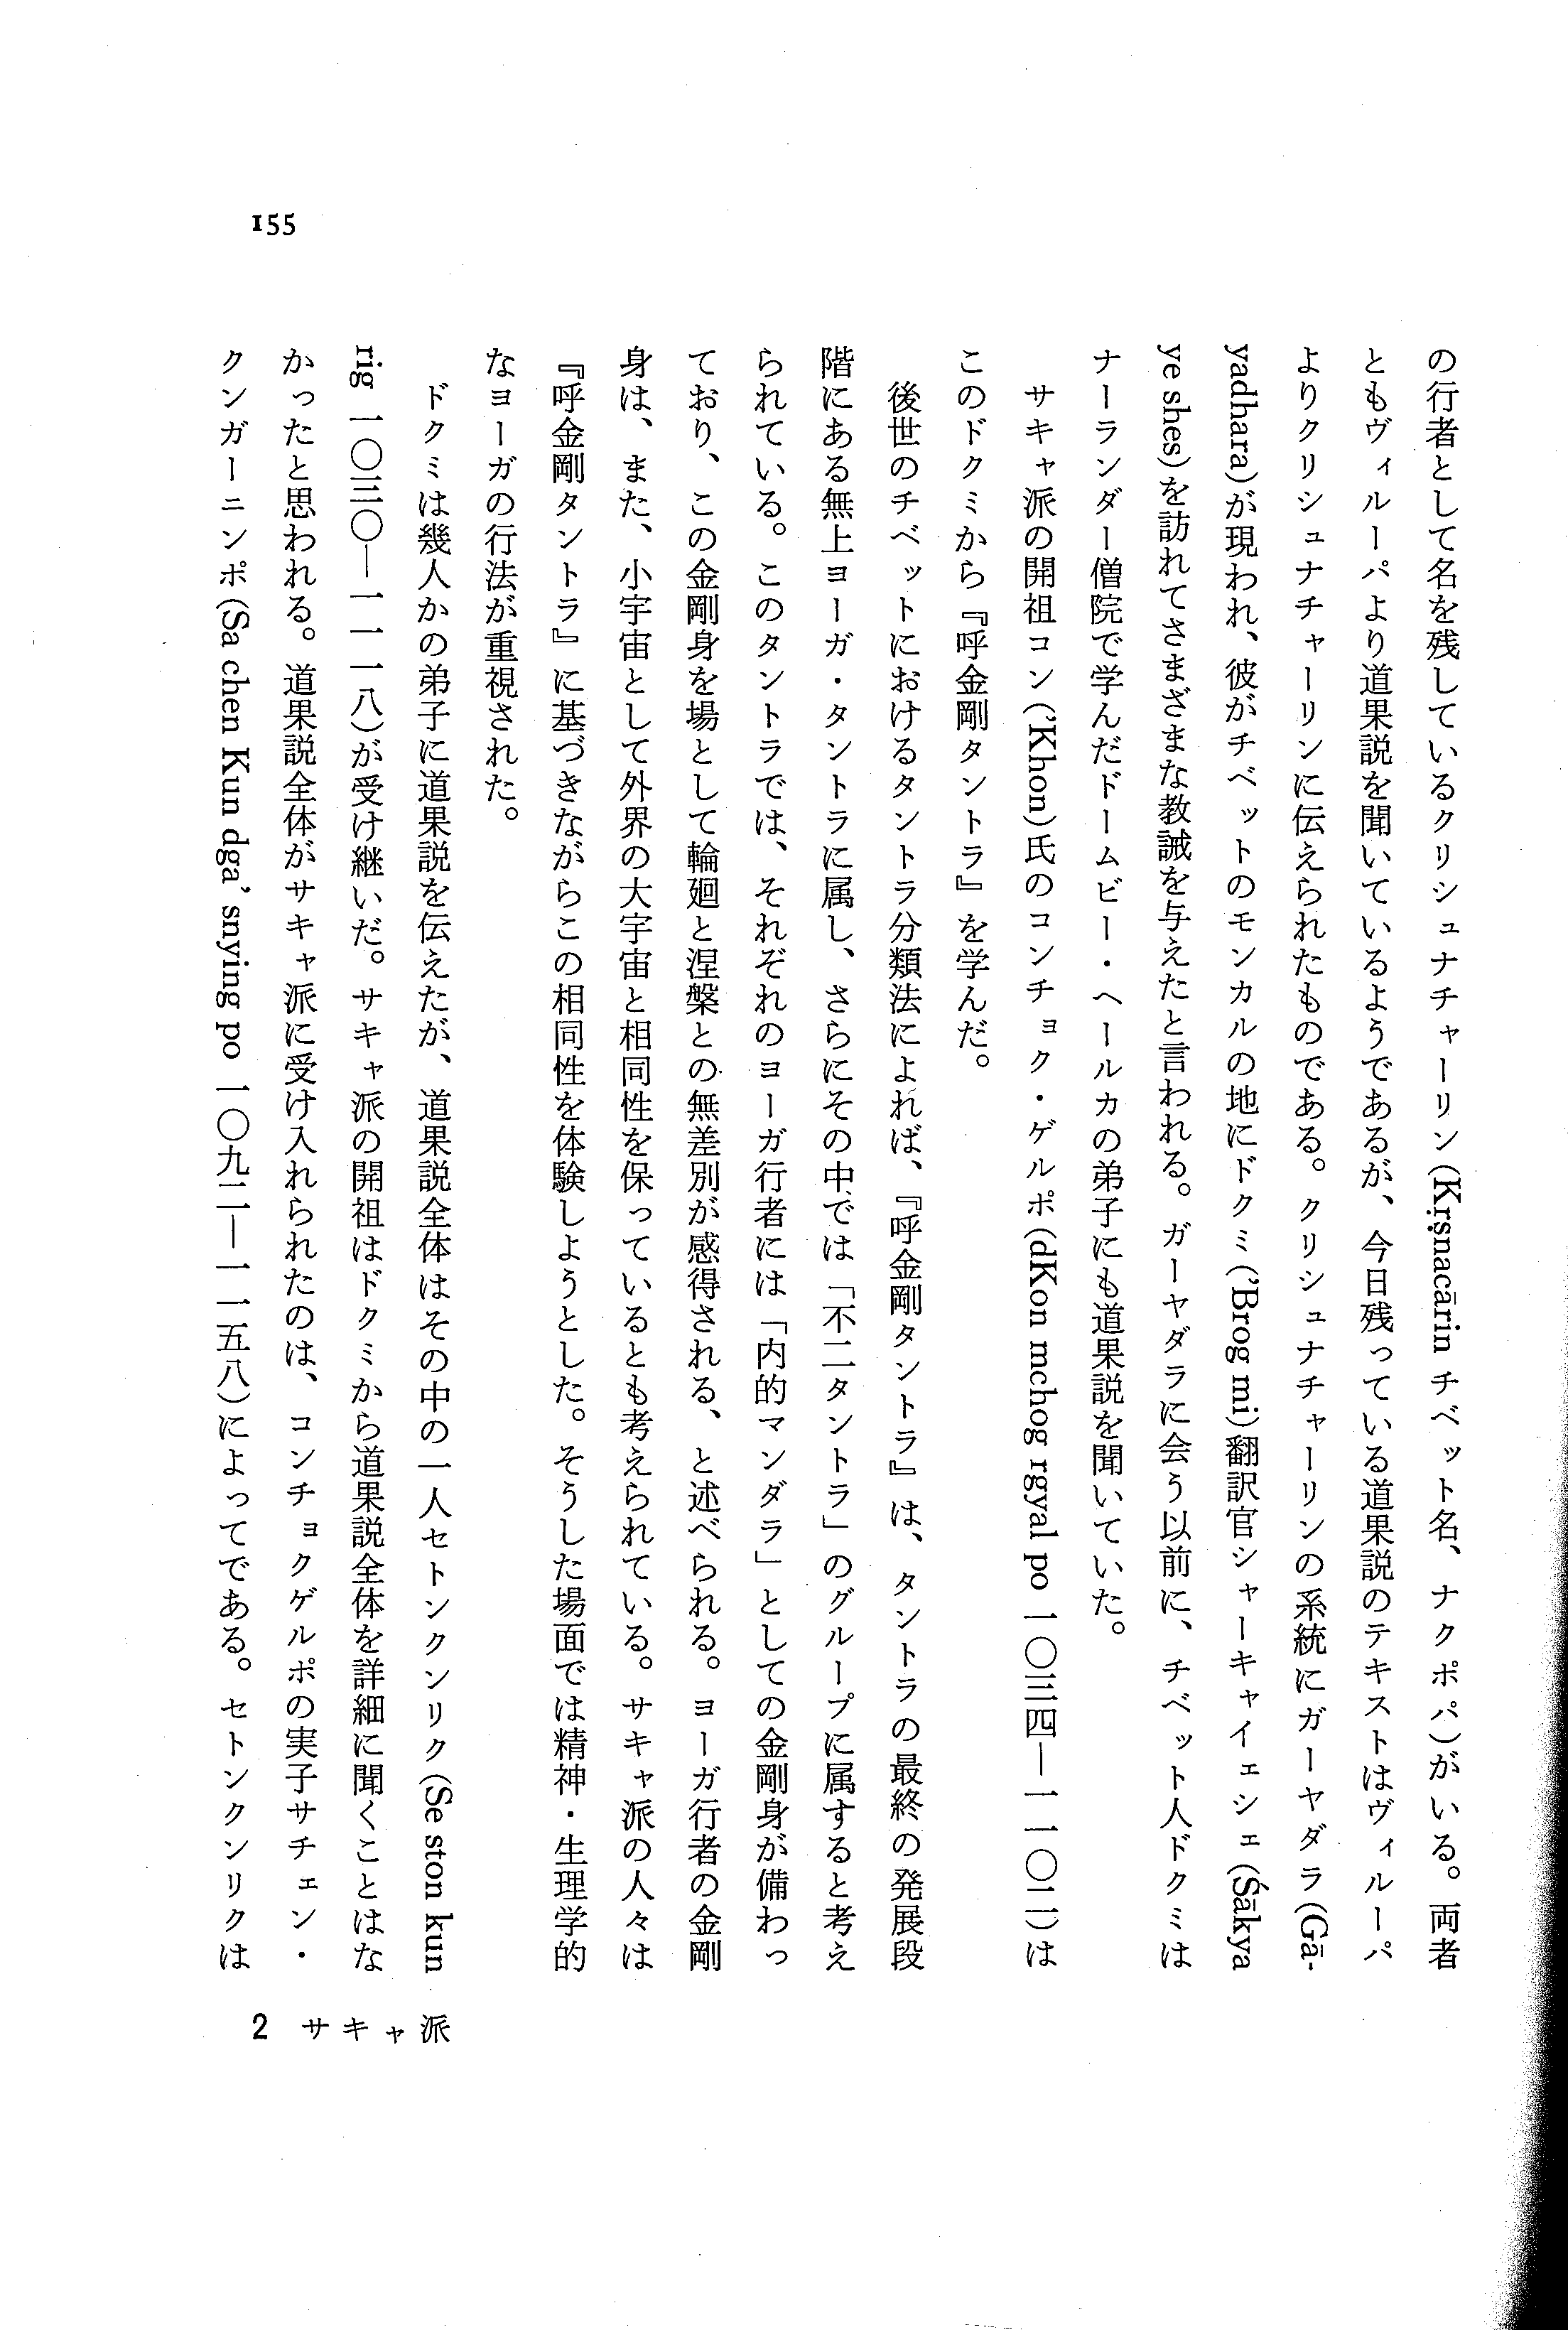 155
の行者として名を残しているクリシュナチャーリン(Kṛṣnacārin チベット名、ナクポパ)がいる。両者
ともヴィルーパより道果説を聞いているようであるが、今日残っている道果説のテキストはヴィルーパ
よりクリシュナチャーリンに伝えられたものである。クリシュナチャーリンの系統にガーヤダラ(Gā-
yadhara)が現われ、彼がチベットのモンカルの地にドクミ('Brog mi)翻訳官シャーキャイェシェ(Śākya
ye shes)を訪れてさまざまな教誡を与えたと言われる。ガーヤダラに会う以前に、チベット人ドクミは
ナーランダー僧院で学んだドームビー・ヘールカの弟子にも道果説を聞いていた。
サキャ派の開祖コン('Khon)氏のコンチョク・ゲルポ(dKon mchog rgyal po 一〇三四—一一〇二)は
このドクミから『呼金剛タントラ』を学んだ。
後世のチベットにおけるタントラ分類法によれば、『呼金剛タントラ』は、タントラの最終の発展段
階にある無上ヨーガ・タントラに属し、さらにその中では「不二タントラ」のグループに属すると考え
られている。このタントラでは、それぞれのヨーガ行者には「内的マンダラ」としての金剛身が備わっ
ており、この金剛身を場として輪廻と涅槃との無差別が感得される、と述べられる。ヨーガ行者の金剛
身は、また、小宇宙として外界の大宇宙と相同性を保っているとも考えられている。サキャ派の人々は
『呼金剛タントラ』に基づきながらこの相同性を体験しようとした。そうした場面では精神・生理学的
なヨーガの行法が重視された。
ドクミは幾人かの弟子に道果説を伝えたが、道果説全体はその中の一人セトンクンリク(Se ston kun
rig 一〇三〇—一一一八)が受け継いだ。サキャ派の開祖はドクミから道果説全体を詳細に聞くことはな
かったと思われる。道果説全体がサキャ派に受け入れられたのは、コンチョクゲルポの実子サチェン・
クンガーニンポ(Sa chen Kun dga' snying po 一〇九二—一一五八)によってである。セトンクンリクは
2 サキャ派